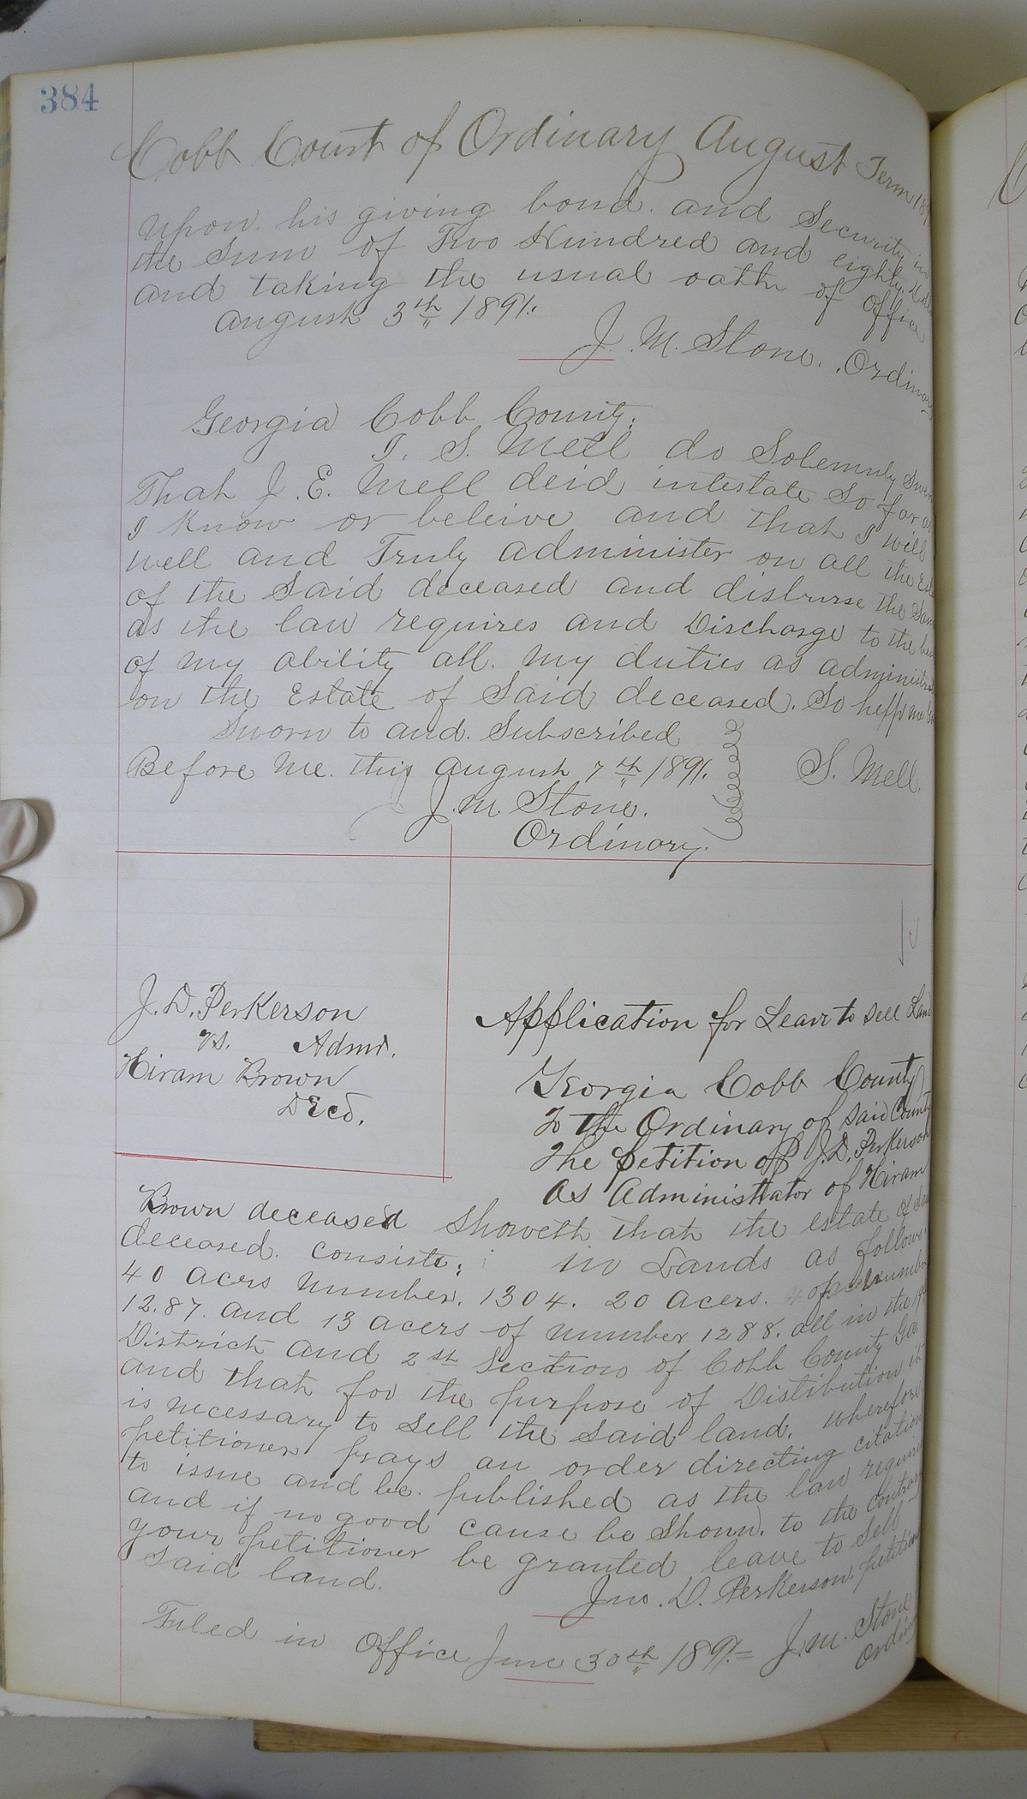 384
Cobb Court of Ordinary August Term 189
upon his giving bond and Security in
the Sum of Two Hundred and eighty
and taking the usual oath of office
August 3th 1891.
J. M. Stone. Ordinary
Georgia Cobb County:
I. S. Mell do Solemnly Swear
That J. E. Mell deid intestate So far as
I know or beleive and that I will
well and Truly administer on all the Es
of the Said deceased and disburse the Sam
as the law requires and Discharge to the bes
of my ability all. my duties as administra
on the Estate of Said deceased. So help me God
Sworn to and Subscribed
Before me. this August 7th 1891. S. Mell.
J. M. Stone.
Ordinary.
J. D. Perkerson
vs. Admr.
Hiram Brown
Decd.
Application for Leave to Sell Land
Georgia Cobb County
To the Ordinary of Said County
The petition of J. D. Perkerson
As Administrator of Hiram
Brown deceased Showeth that the estate of
deceased. consists: in Lands as follows.
40 acers number. 1304. 20 acers. of number
12.87. and 13 acers of number 1288. all in the 19
District and 2st Section of Cobb County Ga
and that for the purpose of Distibution it
is necessary to Sell the Said land. Wherefore
petitioner prays an order directing citation
to issue and be. published as the law requires
and if no good cause be Shown. to the Contrary
your petitioner be granted leave to Sell
said land.
Jno. D. Perkerson. petition
Filed in Office June 30th 1891.= J. M. Stone
Ordin